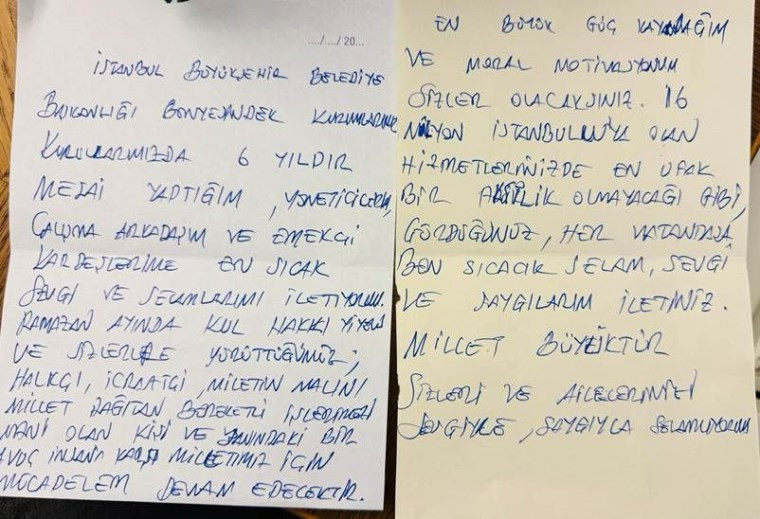 ..../..../ 20...
İSTANBUL BÜYÜKŞEHİR BELEDİYE
BAŞKANLIĞI BÜNYESİNDEKİ KURUMLARIMIZ
KURULLARIMIZDA 6 YILDIR
MESAİ YAPTIĞIM, YÖNETİCİLERİM,
ÇALIŞMA ARKADAŞIM VE EMEKÇİ
KARDEŞLERİME EN SICAK
SEVGİ VE SELAMLARIMI İLETİYORUM.
RAMAZAN AYINDA KUL HAKKI YİYEN
VE SİZLERLE YÜRÜTTÜĞÜMÜZ;
HALKÇI, İCRAATÇI, MİLLETİN MALINI
MİLLET DAĞITAN BEREKETLİ İŞLERİMİZİ
MANİ OLAN KİŞİ VE YANINDAKİ BİR
AVUÇ İNSANA KARŞI MİLLETİMİZ İÇİN
MÜCADELEM DEVAM EDECEKTİR.
EN BÜYÜK GÜÇ KAYNAĞIM
VE MORAL MOTİVASYONUM
SİZLER OLACAKSINIZ. 16
MİLYON İSTANBULLUYA OLAN
HİZMETLERİNİZDE EN UFAK
BİR AKSİLİK OLMAYACAĞI GİBİ,
GÖRDÜĞÜNÜZ, HER VATANDAŞA
BEN SICACIK SELAM, SEVGİ
VE SAYGILARIM İLETİNİZ.
MİLLET BÜYÜKTÜR
SİZLERİ VE AİLELERİNİZİ
SEVGİYLE, SAYGIYLA SELAMLIYORUM